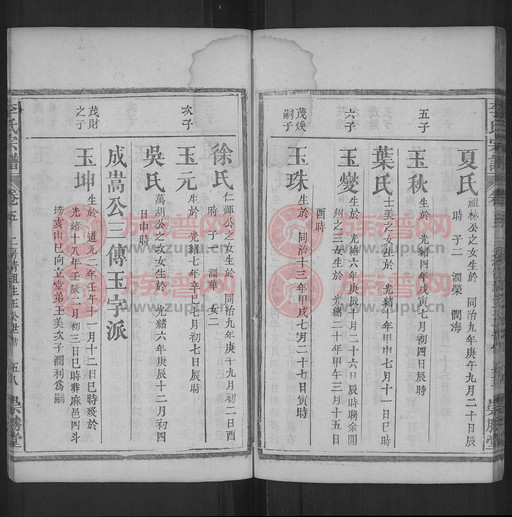 夏氏 祖林公之女生於 同治九年庚午九月二十日辰
時 子二 潤榮 潤海
五子
玉秋 生於 光緒四年戊寅七月初四日辰時
葉氏 士美之女生於 光緒十年甲申七月十一日巳時
六子
玉燮 生於 光緒六年庚辰十月二十六日辰時聘余開
州之三女生於 光緒二十年甲午三月十五日
酉時
茂煥
嗣子
玉珠 生於 同治十三年甲戌七月二十七日寅時
徐氏 仁鐸公之女生於 同治九年庚午九月初二日酉
時 子一 潤華 女二
次子
玉元 生於 光緒七年辛巳八月初七日辰時
吳氏 萬胡公之次女生於 光緒六年庚辰十二月初四
日申時
成嵩公三傳玉字派
茂財
之子
玉坤 生於 道光二年壬午十一月十二日巳時歿於
光緒十八年壬辰二月初三日巳時葬麻邑四斗
塝亥山巳向立堂弟玉美次子潤利為嗣
李氏宗譜
卷五
五八
崇勝堂
族譜網
www.zupu.cn